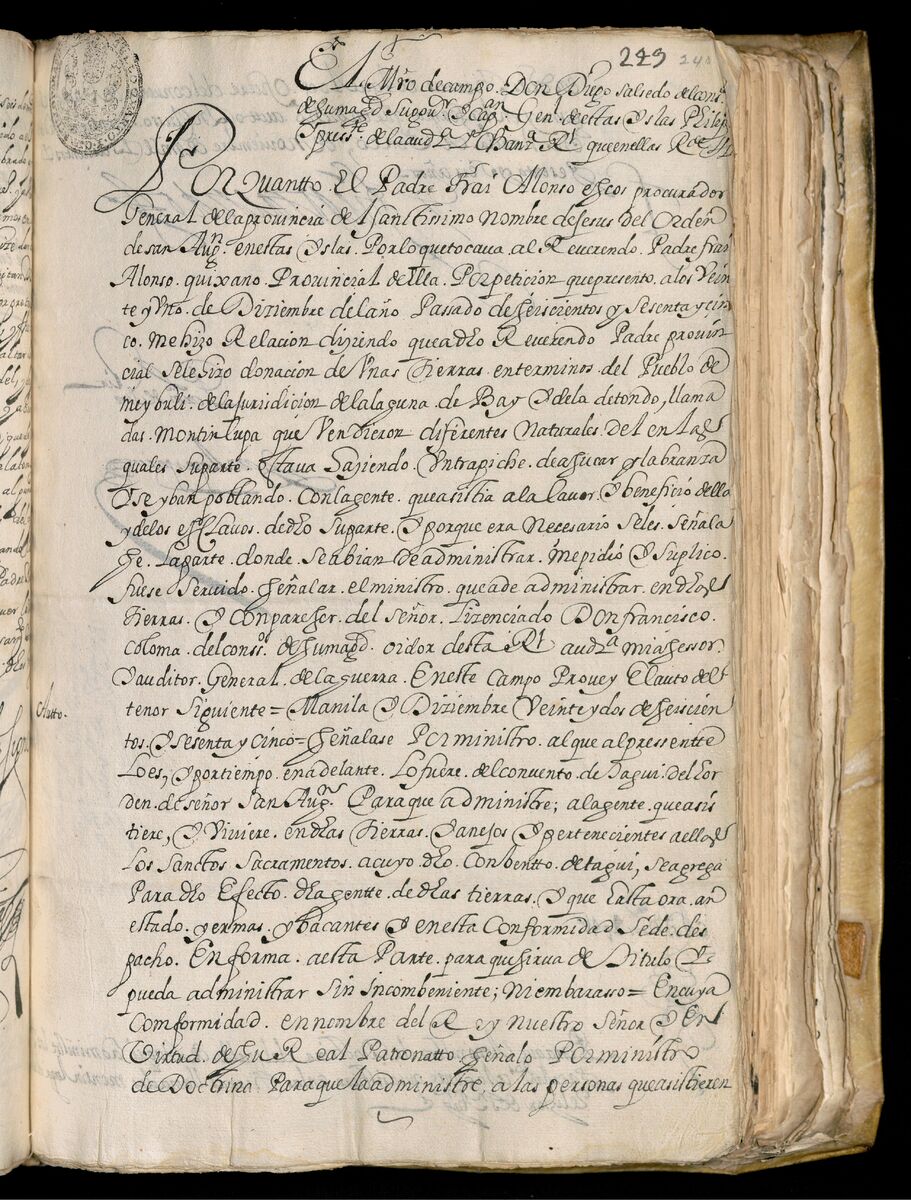 243 240
El Mro de campo. Don Diego Salsedo del cons.
de su magd su gour. y Capan Genl. de estas Yslas Philip
y press.te de la audz.a y Chanz.a Rl que en ellas Rce
Por quantto. El Padre Frai Alonso escos procurador
General de la provincia del santissimo nombre de Jesus del orden
de san Augn. en estas yslas. Por lo que tocava al Reverendo. Padre frai
Alonso. quixano. Provincial de ella. Por peticion que presento a los Vein
te y Vno. de Diziembre del año Passado de seiscientos y Sesenta y cin
co. me hizo Relacion diziendo que a dho Reverendo Padre provin
cial se le hizo donacion de Vnas Tierras en terminos del Pueblo de
meybuli. de la jurisdicion de la laguna de Bay y de la de tondo, llama
das. Montinlupa que Vendieron diferentes Naturales del en las
quales su parte. estava hasiendo. Vn trapiche. de asucar y labranza
y se yban poblando. con la gente. que asistia a la lavor y beneficio della
y de los esclavos. de dho su parte. y porque era necesario se les. señala
se. la parte. donde se abian de administrar. me pidio y suplico.
fuese servido. señalar. el ministro que a de administrar. en dhas
tierras. y con pareser. del señor. lizenciado Don francisco.
coloma. del conso. de su magd. oidor desta Rl audza mi asessor.
y auditor. General. de la guerra. En este Campo Provey El auto del
Autto.
tenor siguiente = Manila y Diziembre Veinte y dos de seiscien
tos. y sesenta y cinco = señalase Por ministro. al que al pressentte
lo es, y por tiempo en adelante. lo fuere. del convento de tagui. del or
den. de señor San Augn. Para que administre; a la gente. que asis
tiere, y Viviere. en dhas tierras. y anejos y pertenecientes a ellas
los Sanctos Sacramentos. a cuyo dho. Conbentto. de tagui, se agrega
Para dho Efecto. dha gentte. de dhas tierras. y que hasta ora. an
estado. yermas. y bacantes y en esta Conformidad se de. des
pacho. En forma. a esta Parte. para que sirva de titulo y
pueda administrar sin incombeniente; ni embarasso = En cuya
Comformidad. en nombre del Rey Nuestro Señor y En
Virtud. de su Real Patronatto. señalo Por ministro
de Doctrina Para que la administre. a las personas que asistieren